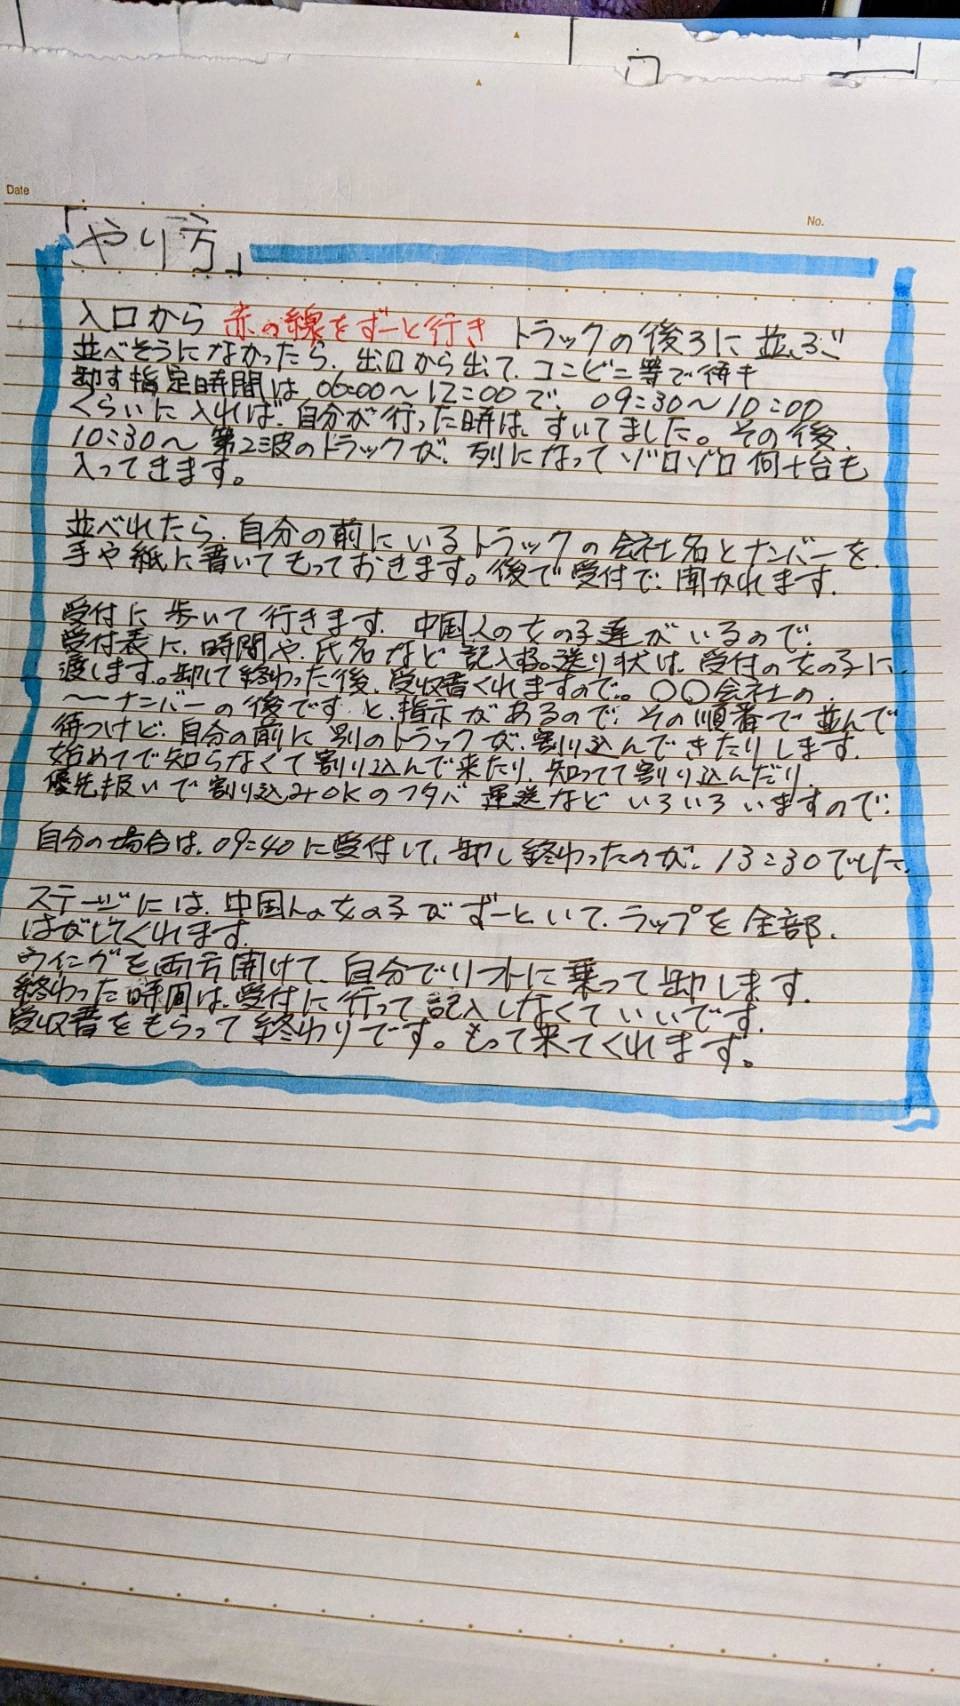 Date
No.
「やり方」
入口から 赤の線をずーと行き トラックの後ろに並ぶ
並べそうになかったら、出口から出て、コンビニ等で待キ
卸す指定時間は 06:00〜12:00で、09:30〜10:00
くらいに入れば、自分が行った時は、すいてました。その後、
10:30〜 第2波のトラックが、列になってゾロゾロ何十台も
入ってきます。
並べれたら、自分の前にいるトラックの会社名とナンバーを、
手や紙に書いてもっておきます。後で受付で、聞かれます。
受付に歩いて行きます、中国人の女の子達がいるので、
受付表に、時間や、氏名など記入する。送り状は、受付の女の子に、
渡します。卸して終わった後、受収書くれますので。〇〇会社の、
〜ーナンバーの後です と、指示があるので、その順番で並んで
待つけど、自分の前に別のトラックが、割り込んできたりします。
始めてで知らなくて割り込んで来たり、知ってて割り込んだり、
優先扱いで割り込みOKのフタバ運送など いろいろいますので、
自分の場合は、09:40に受付して、卸し終わったのが、13:30でした。
ステージには、中国人の女の子がずーといて、ラップを全部、
はがしてくれます。
ウイングを両方開けて、自分でリフトに乗って卸します。
終わった時間は、受付に行って記入しなくていいです。
受収書をもらって終わりです。もって来てくれます。